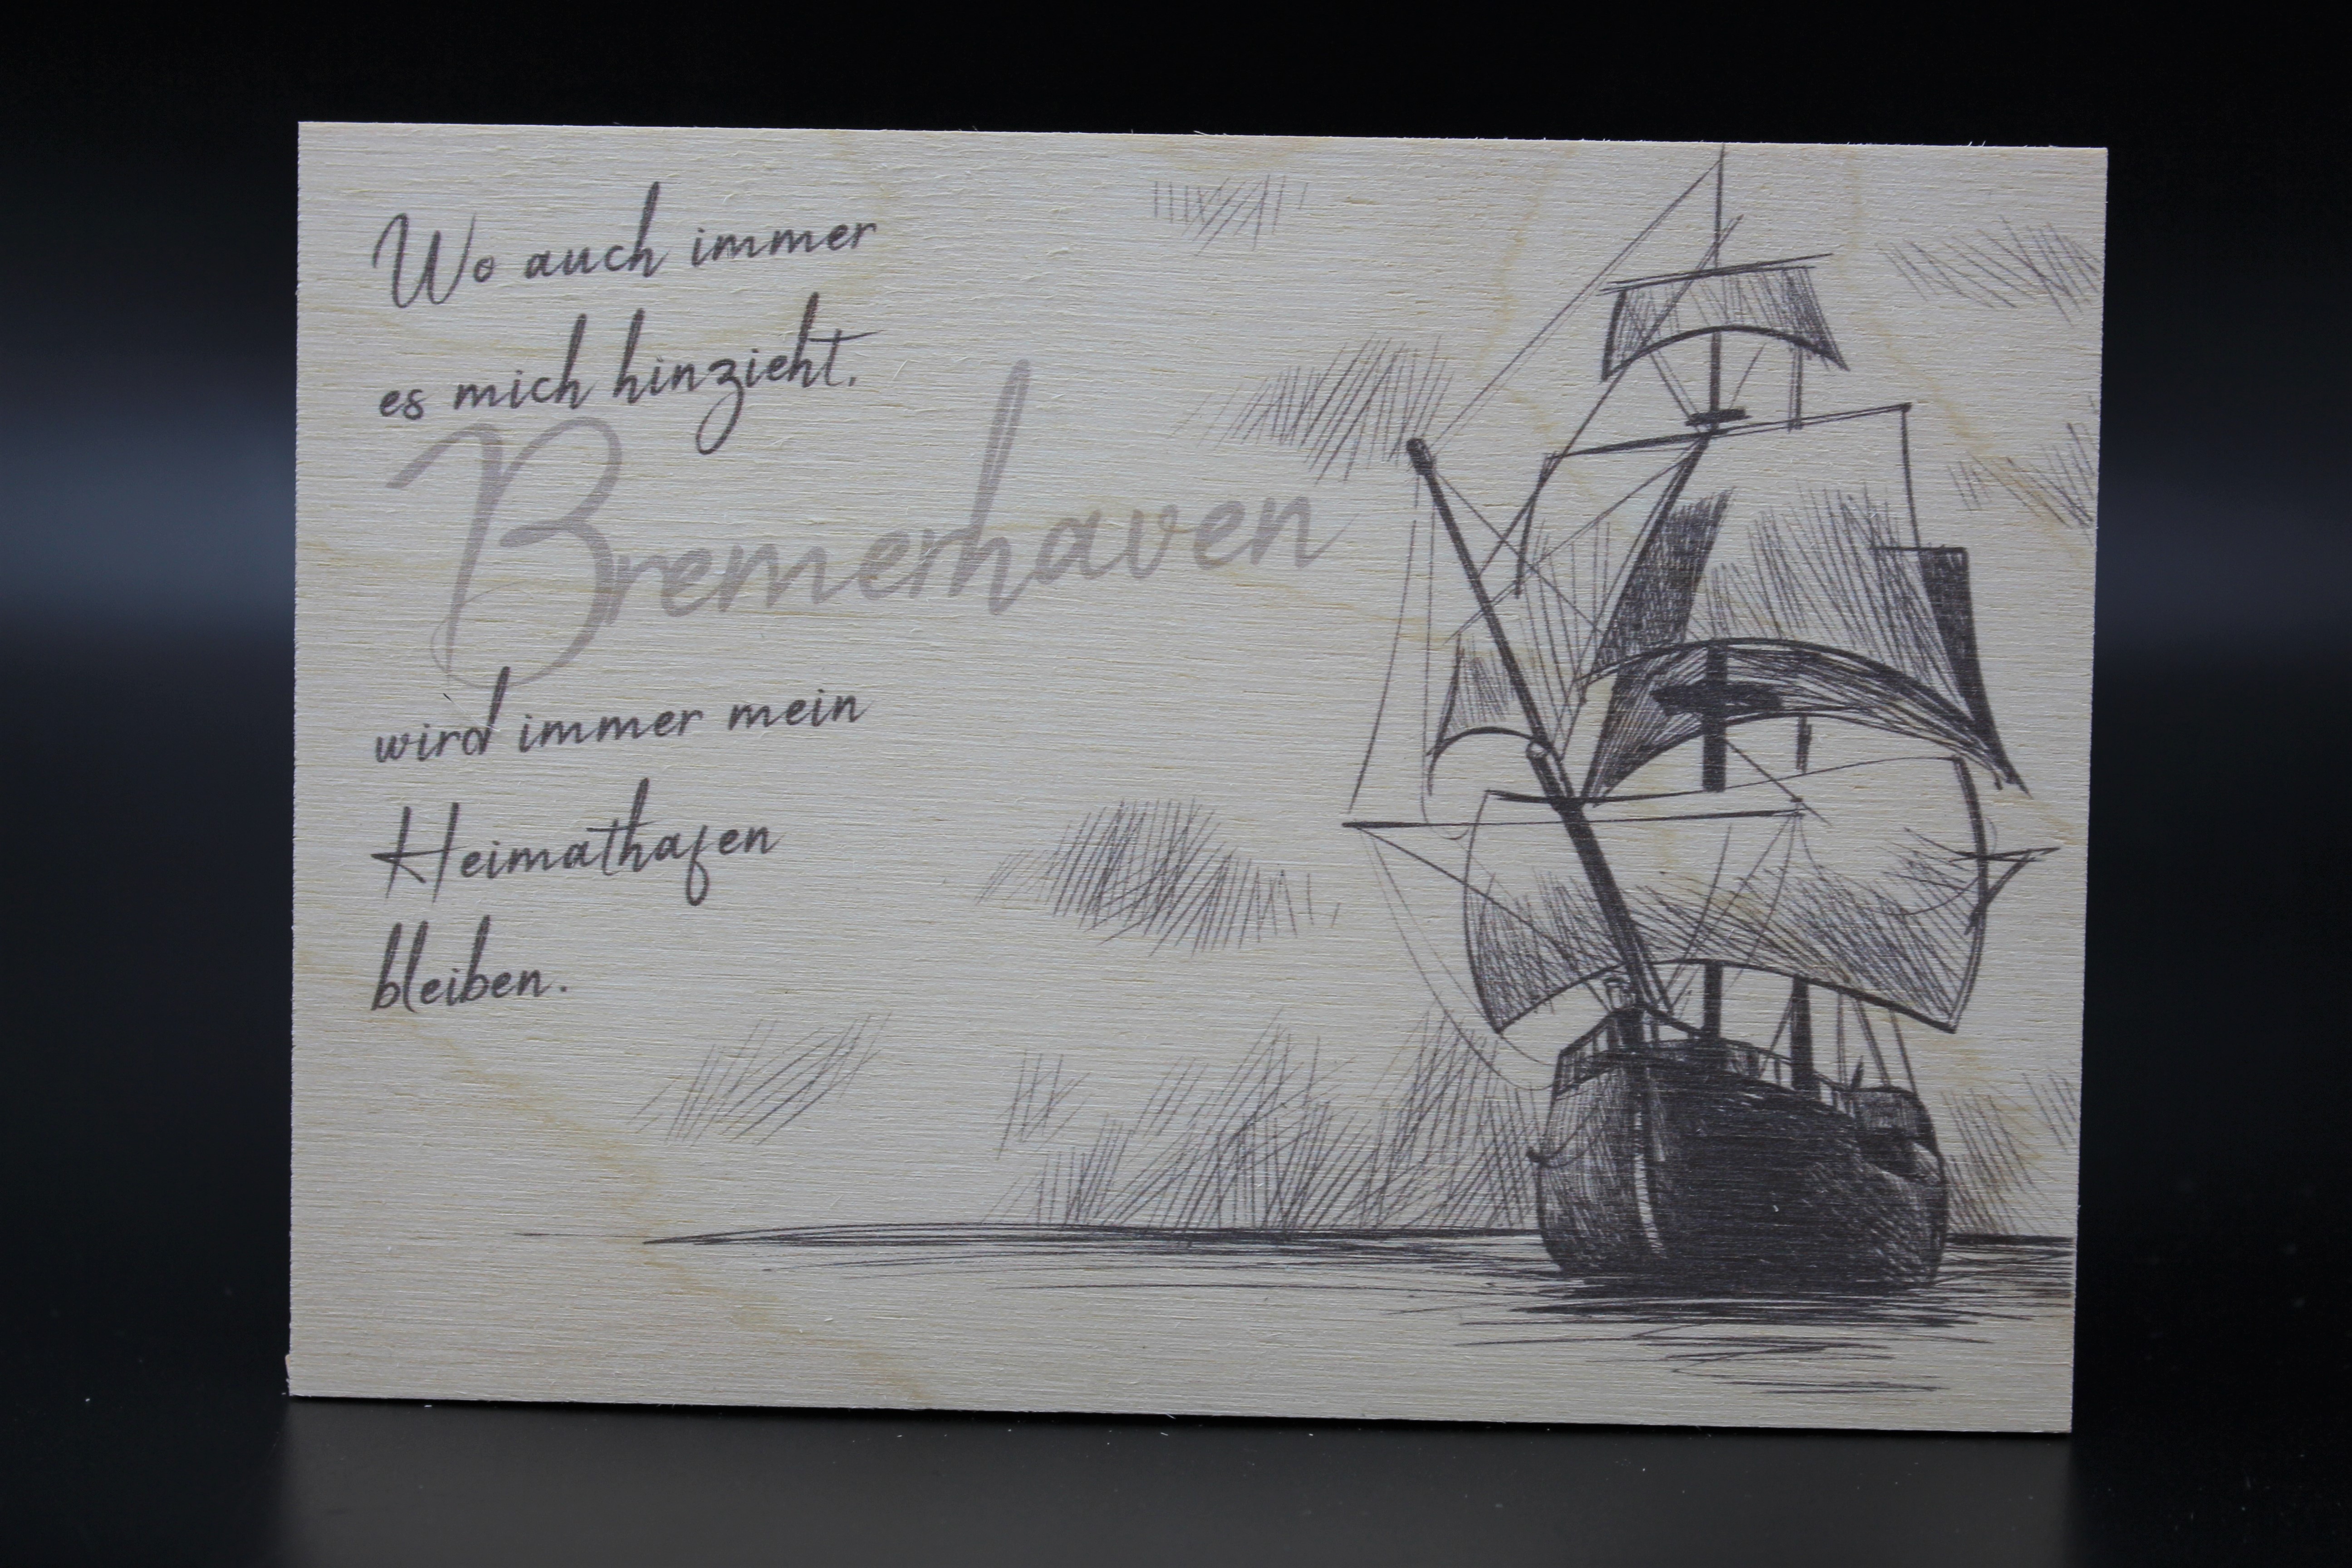 Wo auch immer
es mich hinzieht,
Bremerhaven
wird immer mein
Heimathafen
bleiben.